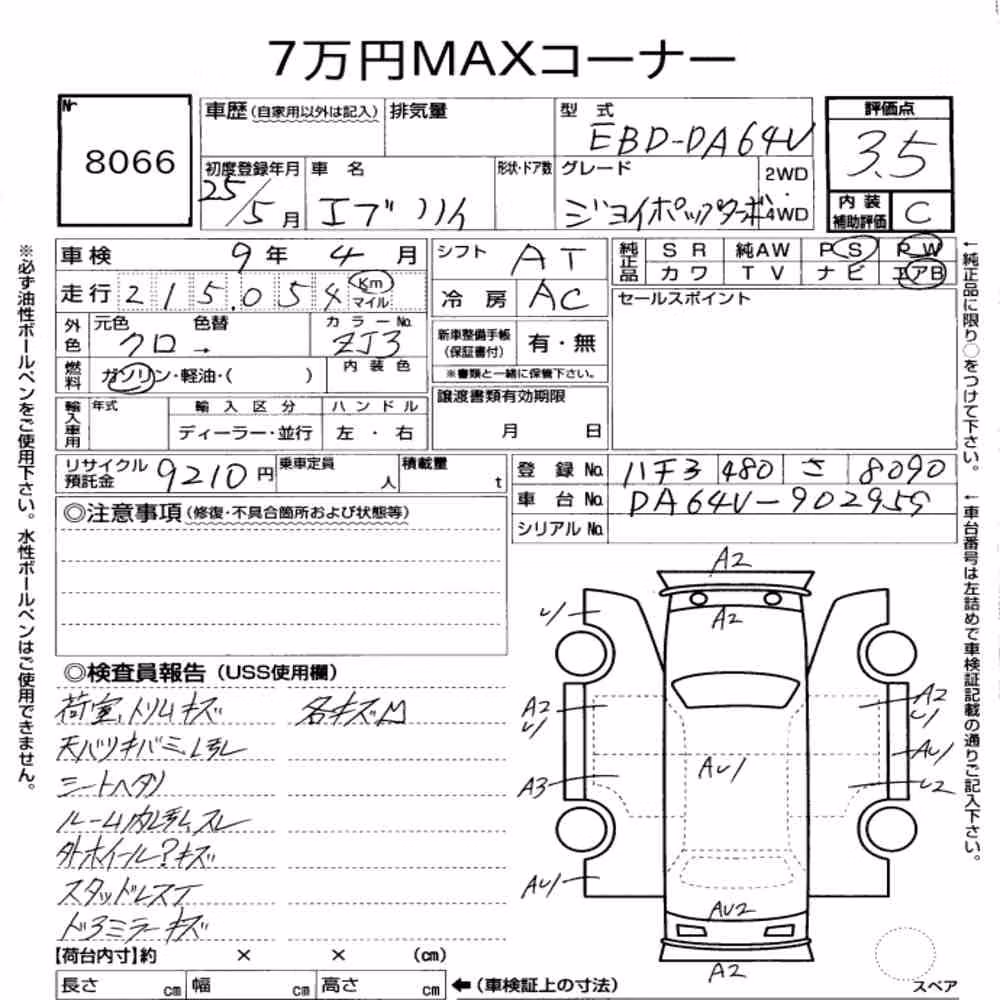 7万円MAXコーナー
Nr
8066
車歴(自家用以外は記入)
排気量
型 式
EBD-DA64V
評価点
3.5
初度登録年月
25/5月
車 名
エブリイ
形状・ドア数
グレード
ジョイポップターボ
2WD
・
4WD
内 装
補助評価
C
車検 9年 4月
シフト AT
純正品
SR 純AW PS PW
カワ TV ナビ エアB
走行 215,054 Km
マイル
冷 房 AC
セールスポイント
外色
元色 色替
クロ →
カラーNo.
ZJ3
新車整備手帳
(保証書付)
有・無
※書類と一緒に保管下さい。
燃料
ガソリン・軽油・( )
内 装 色
輸入車用
年式
輸 入 区 分
ディーラー・並行
ハ ン ド ル
左 ・ 右
譲渡書類有効期限
月 日
リサイクル
預託金
9210円
乗車定員
人
積載量
t
登 録 No. 八千ヨ 480 さ 8090
車 台 No. DA64V-902959
シリアル No.
◎注意事項(修復・不具合箇所および状態等)
◎検査員報告(USS使用欄)
荷室、トリムキズ 各キズ凹
天バリキバミ
シートヘタリ
ルーム内 スレ
外ホイール?キズ
スタッドレスT
ドアミラーキズ
【荷台内寸】約 × × (cm)
長さ cm 幅 cm 高さ cm
←(車検証上の寸法)
A2
A2
A2
A2
A3
AU1
AU1
AU1
AU2
A2
スペア
※必ず油性ボールペンをご使用下さい。水性ボールペンはご使用できません。
←純正品に限り○をつけて下さい。
←車台番号は左詰めで車検証記載の通りご記入下さい。